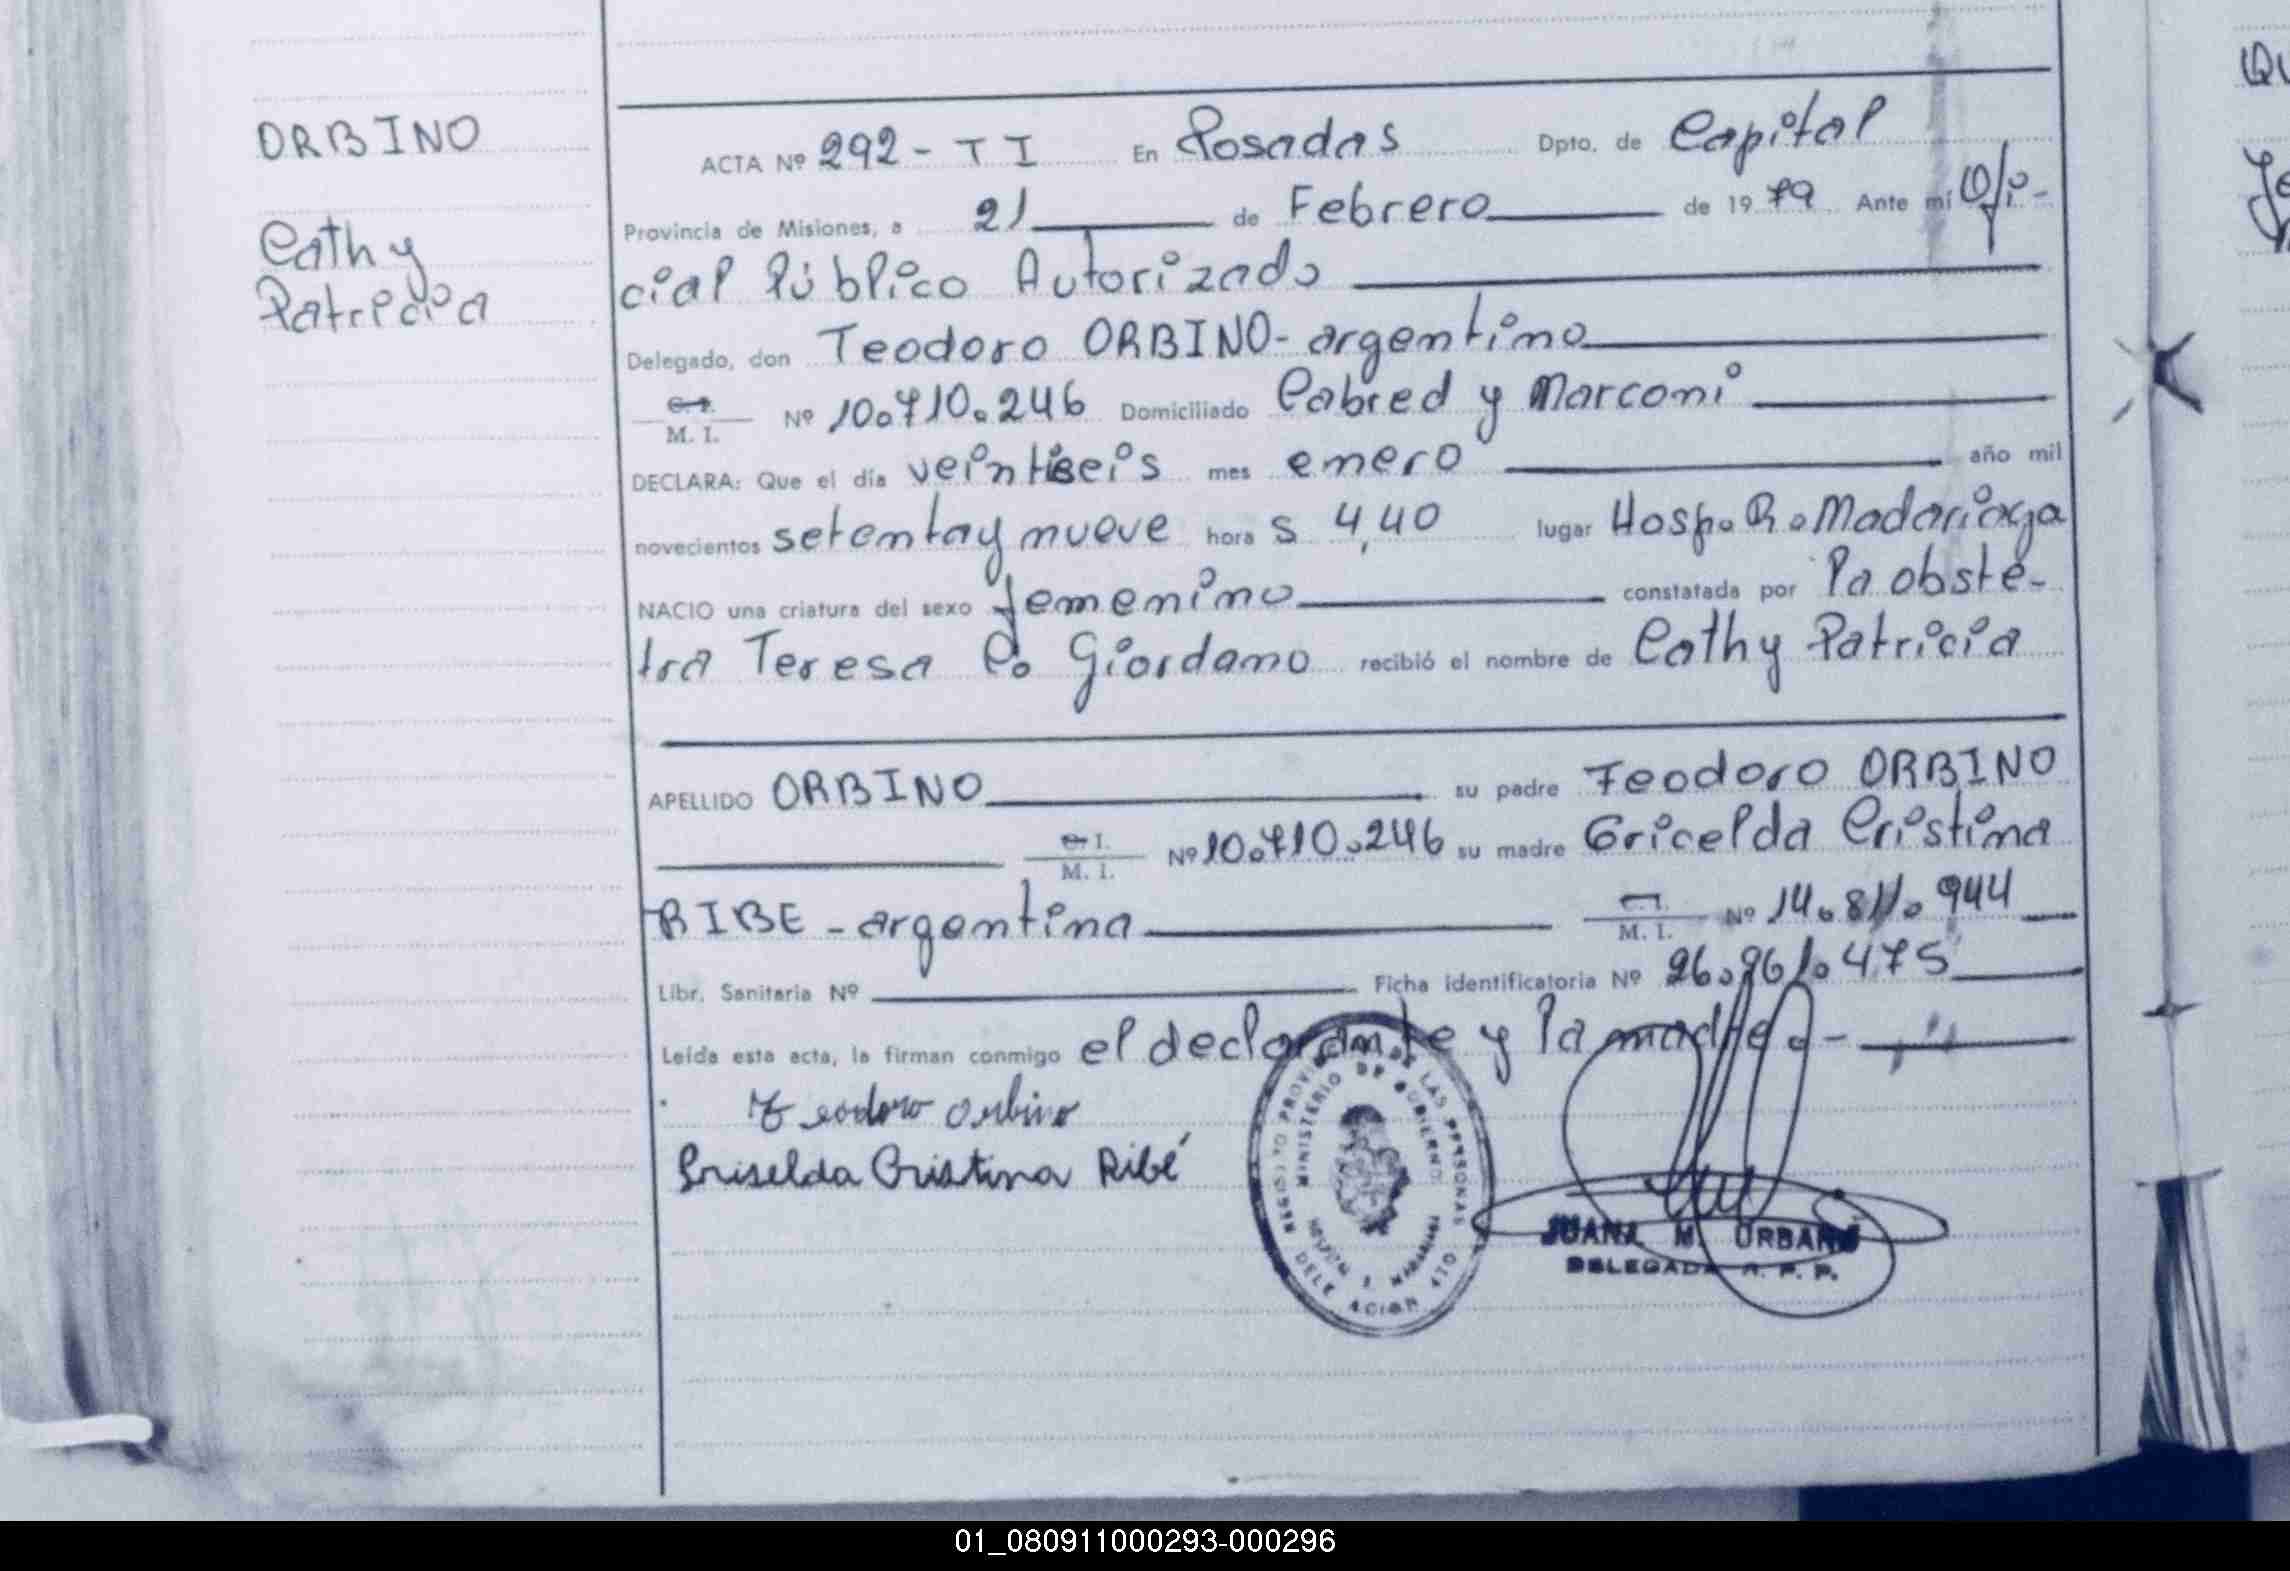 ORBINO
Cathy
Patricia
ACTA Nº 292 - TI En Posadas Dpto. de Capital
Provincia de Misiones, a 21 de Febrero de 1979 Ante mí Ofi-
cial Público Autorizado
Delegado, don Teodoro ORBINO - argentino
C. I.
M. I. Nº 10.710.246 Domiciliado Cabred y Marconi
DECLARA: Que el día veintiseis mes enero año mil
novecientos setenta y nueve hora s 4,40 lugar Hosp. R. Madariaga
NACIO una criatura del sexo femenino constatada por la obste-
tra Teresa C. Giordano recibió el nombre de Cathy Patricia
APELLIDO ORBINO su padre Teodoro ORBINO
C. I.
M. I. Nº 10.710.246 su madre Gricelda Cristina
RIBE - argentina
C. I.
M. I. Nº 14.811.944
Libr. Sanitaria Nº Ficha identificatoria Nº 26.961.475
Leída esta acta, la firman conmigo el declarante y la madre. -
Teodoro Orbino
Griselda Cristina Ribé
REGISTRO PROVINCIAL DE LAS PERSONAS
MINISTERIO DE GOBIERNO
DELEGACION 4TO
JUANA M. URBANO
DELEGADA R. P. P.
QU
01_080911000293-000296